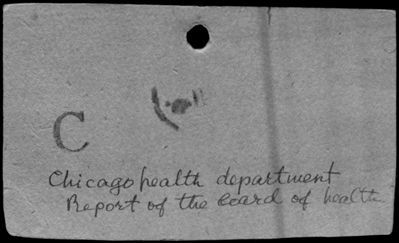 C
Chicago health department
Report of the board of health